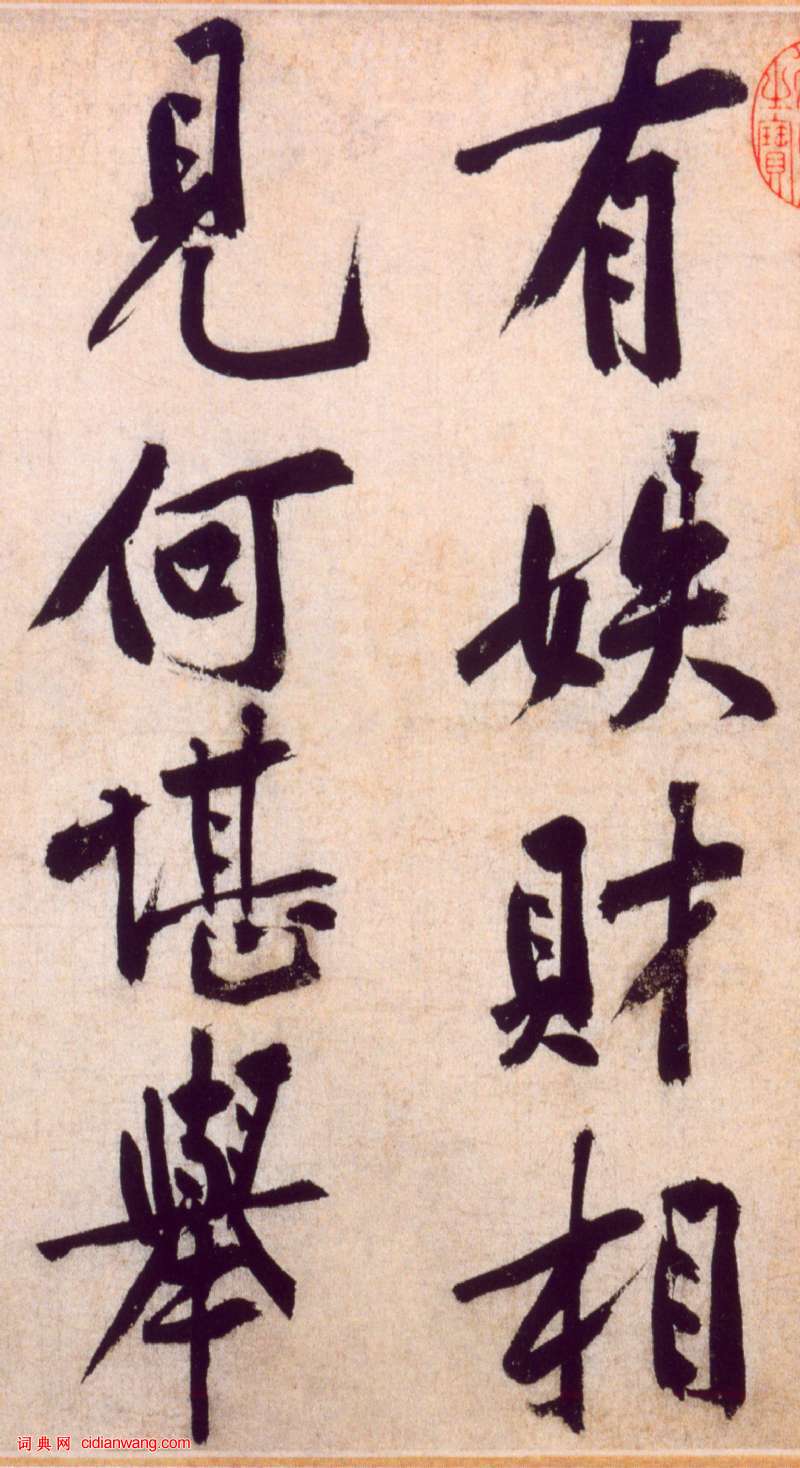 有財相
見何堪舉
寶
词典网 cidianwang.com